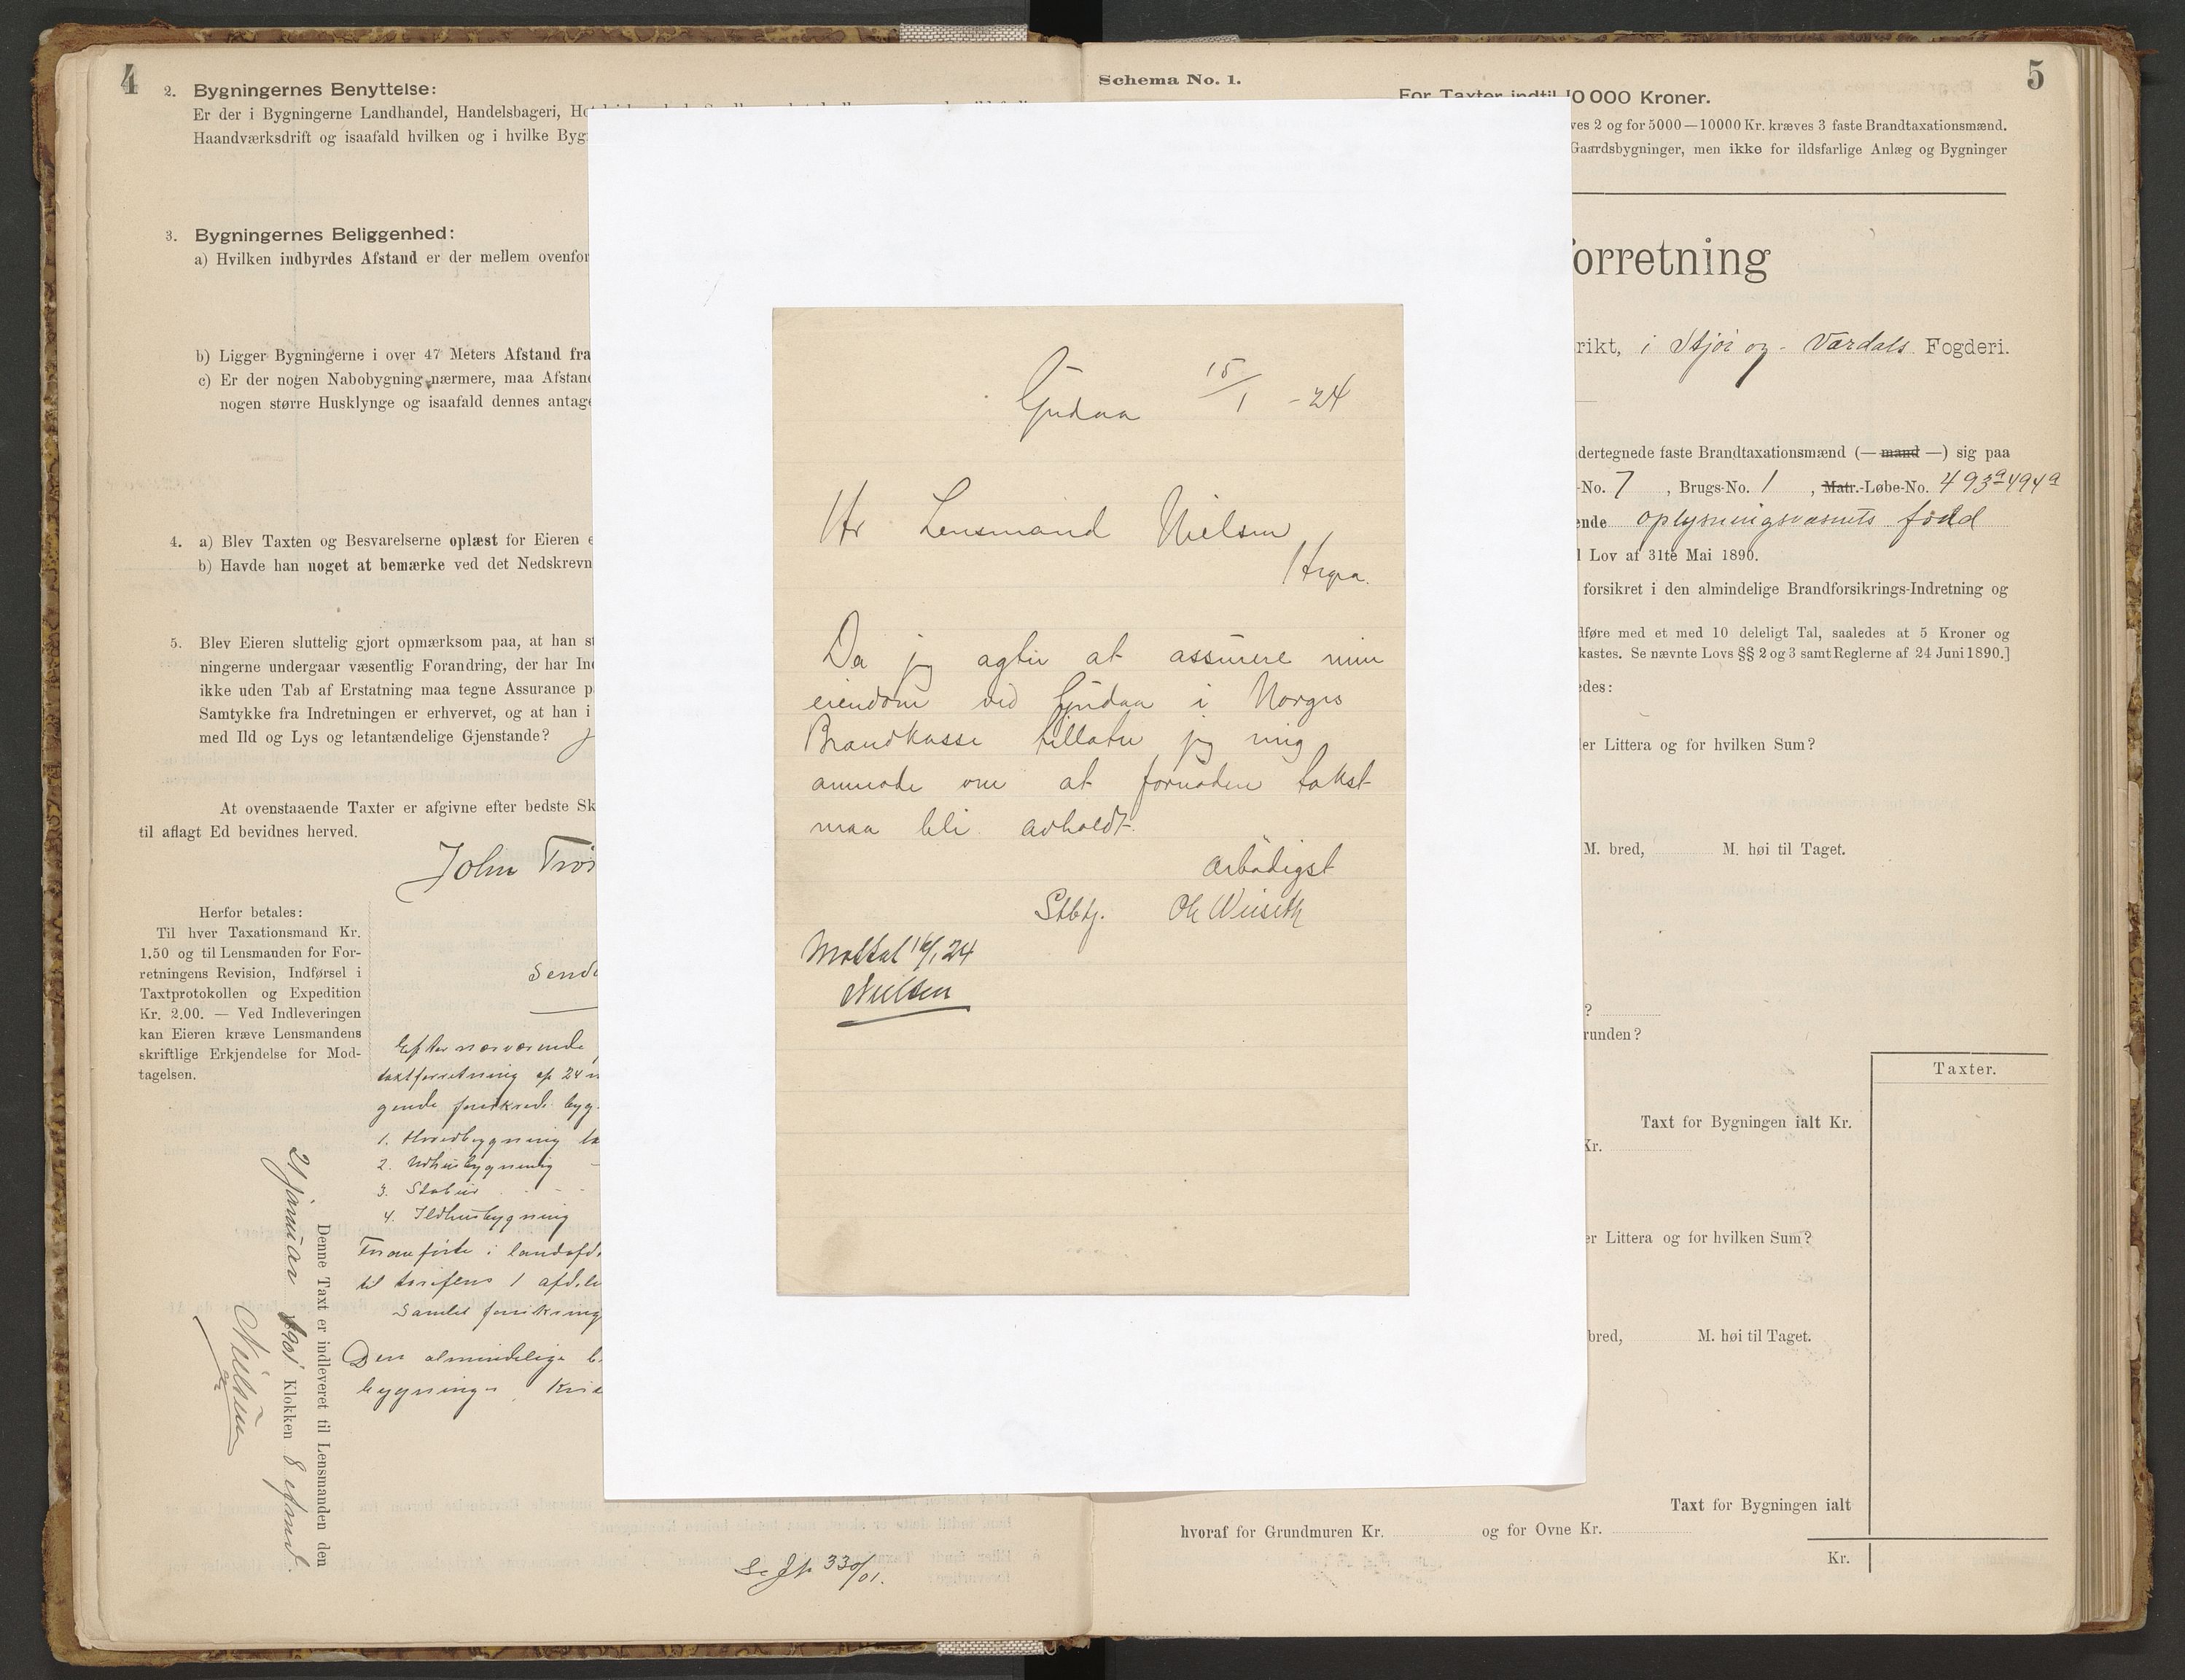 4
2. Bygningernes Benyttelse:
Er der i Bygningerne Landhandel, Handelsbageri,
Haandværksdrift og isaafald hvilken og i hvilke
3. Bygningernes Beliggenhed:
a) Hvilken indbyrdes Afstand er der mellem
b) Ligger Bygningerne i over 47 Meters Afstand fra
c) Er der nogen Nabobygning nærmere, maa
nogen større Husklynge og isaafald dennes
4. a) Blev Taxten og Besvarelserne oplæst for Eieren
b) Havde han noget at bemærke ved det
5. Blev Eieren sluttelig gjort opmærksom paa, at han
ningerne undergaar væsentlig Forandring, der har
ikke uden Tab af Erstatning maa tegne Assurance
Samtykke fra Indretningen er erhvervet, og at han i
med Ild og Lys og letantændelige Gjenstande?
At ovenstaaende Taxter er afgivne efter bedste
til aflagt Ed bevidnes herved.
John
Herfor betales:
Til hver Taxationsmand Kr.
1.50 og til Lensmanden for For-
retningens Revision, Indførsel i
Taxtprotokollen og Expedition
Kr. 2.00. — Ved Indleveringen
kan Eieren kræve Lensmandens
skriftlige Erkjendelse for Mod-
tagelsen.
Efter nærværende
taxtforretning af 24
gende byg-
1. Hovedbygning
2. Udhusbygning
3. Stabur
4. Ildhusbygning
til tarifens 1
Samlet
Den almindelige
Denne Taxt er indleveret til Lensmanden den
21 januar 1901 Klokken 8
Nielsen
Se Jp 330/01.
Gudaa 15/1 - 24
Hr Lensmand Nielsen
Hegra.
Da jeg agter at assurere min
eiendom ved Gudaa i Norges
Brandkasse tillater jeg mig
anmode om at fornøden takst
maa bli avholdt.
Ærbødigst
Stbtj. Ole Wiiseth
Mottat 16/1 24
Nielsen
Schema No. 1.
5
For Taxter indtil 10 000 Kroner.
2 og for 5000—10000 Kr. kræves 3 faste Brandtaxationsmænd.
Gaardsbygninger, men ikke for ildsfarlige Anlæg og Bygninger
orretning
rikt, i Stjør og - Værdals Fogderi.
dertegnede faste Brandtaxationsmænd (— mand —) sig paa
-No. 7, Brugs-No. 1, Matr.-Løbe-No. 493a 494a
oplysningsvæsnets fond
Lov af 31te Mai 1890.
forsikret i den almindelige Brandforsikrings-Indretning og
føre med et med 10 deleligt Tal, saaledes at 5 Kroner og
kastes. Se nævnte Lovs §§ 2 og 3 samt Reglerne af 24 Juni 1890.]
edes:
er Littera og for hvilken Sum?
M. bred, M. høi til Taget.
?
runden?
Taxter.
Taxt for Bygningen ialt Kr.
Kr.
er Littera og for hvilken Sum?
bred, M. høi til Taget.
Taxt for Bygningen ialt
hvoraf for Grundmuren Kr. og for Ovne Kr.
Kr.